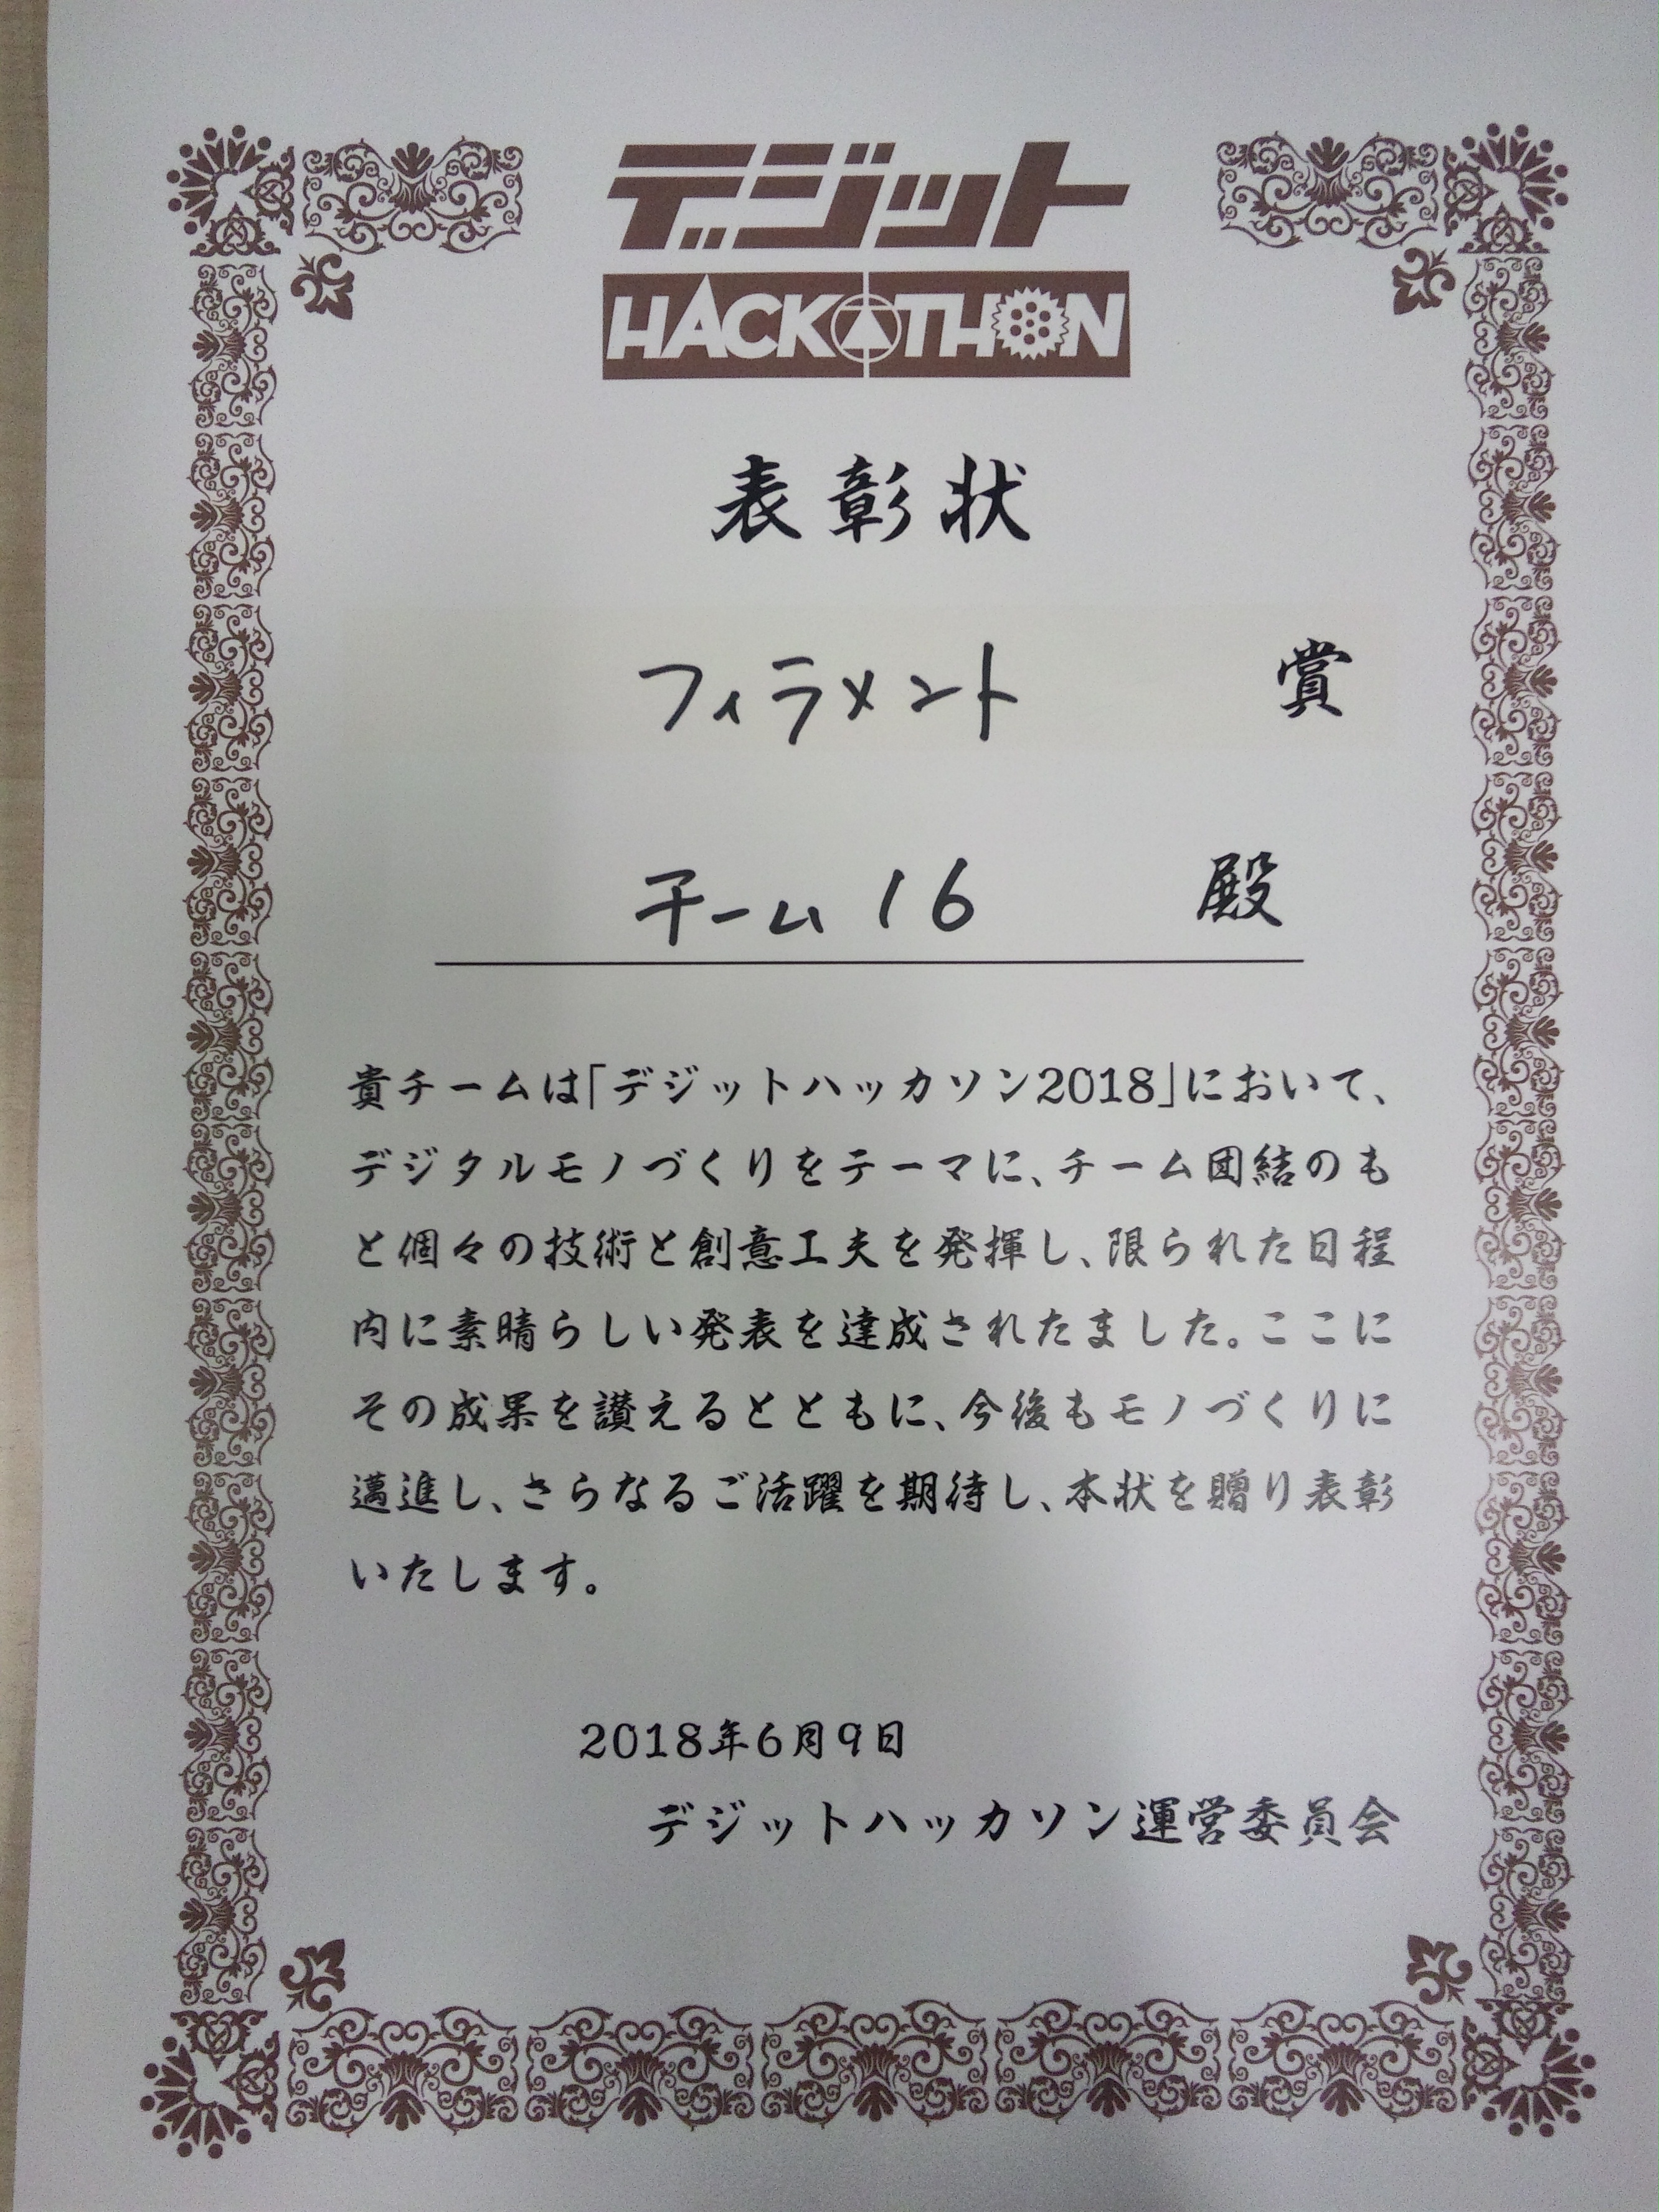 デジット
HACKATHON
表彰状
フィラメント 賞
チーム 16 殿
貴チームは「デジットハッカソン2018」において、
デジタルモノづくりをテーマに、チーム団結のも
と個々の技術と創意工夫を発揮し、限られた日程
内に素晴らしい発表を達成されたました。ここに
その成果を讃えるとともに、今後もモノづくりに
邁進し、さらなるご活躍を期待し、本状を贈り表彰
いたします。
2018年6月9日
デジットハッカソン運営委員会